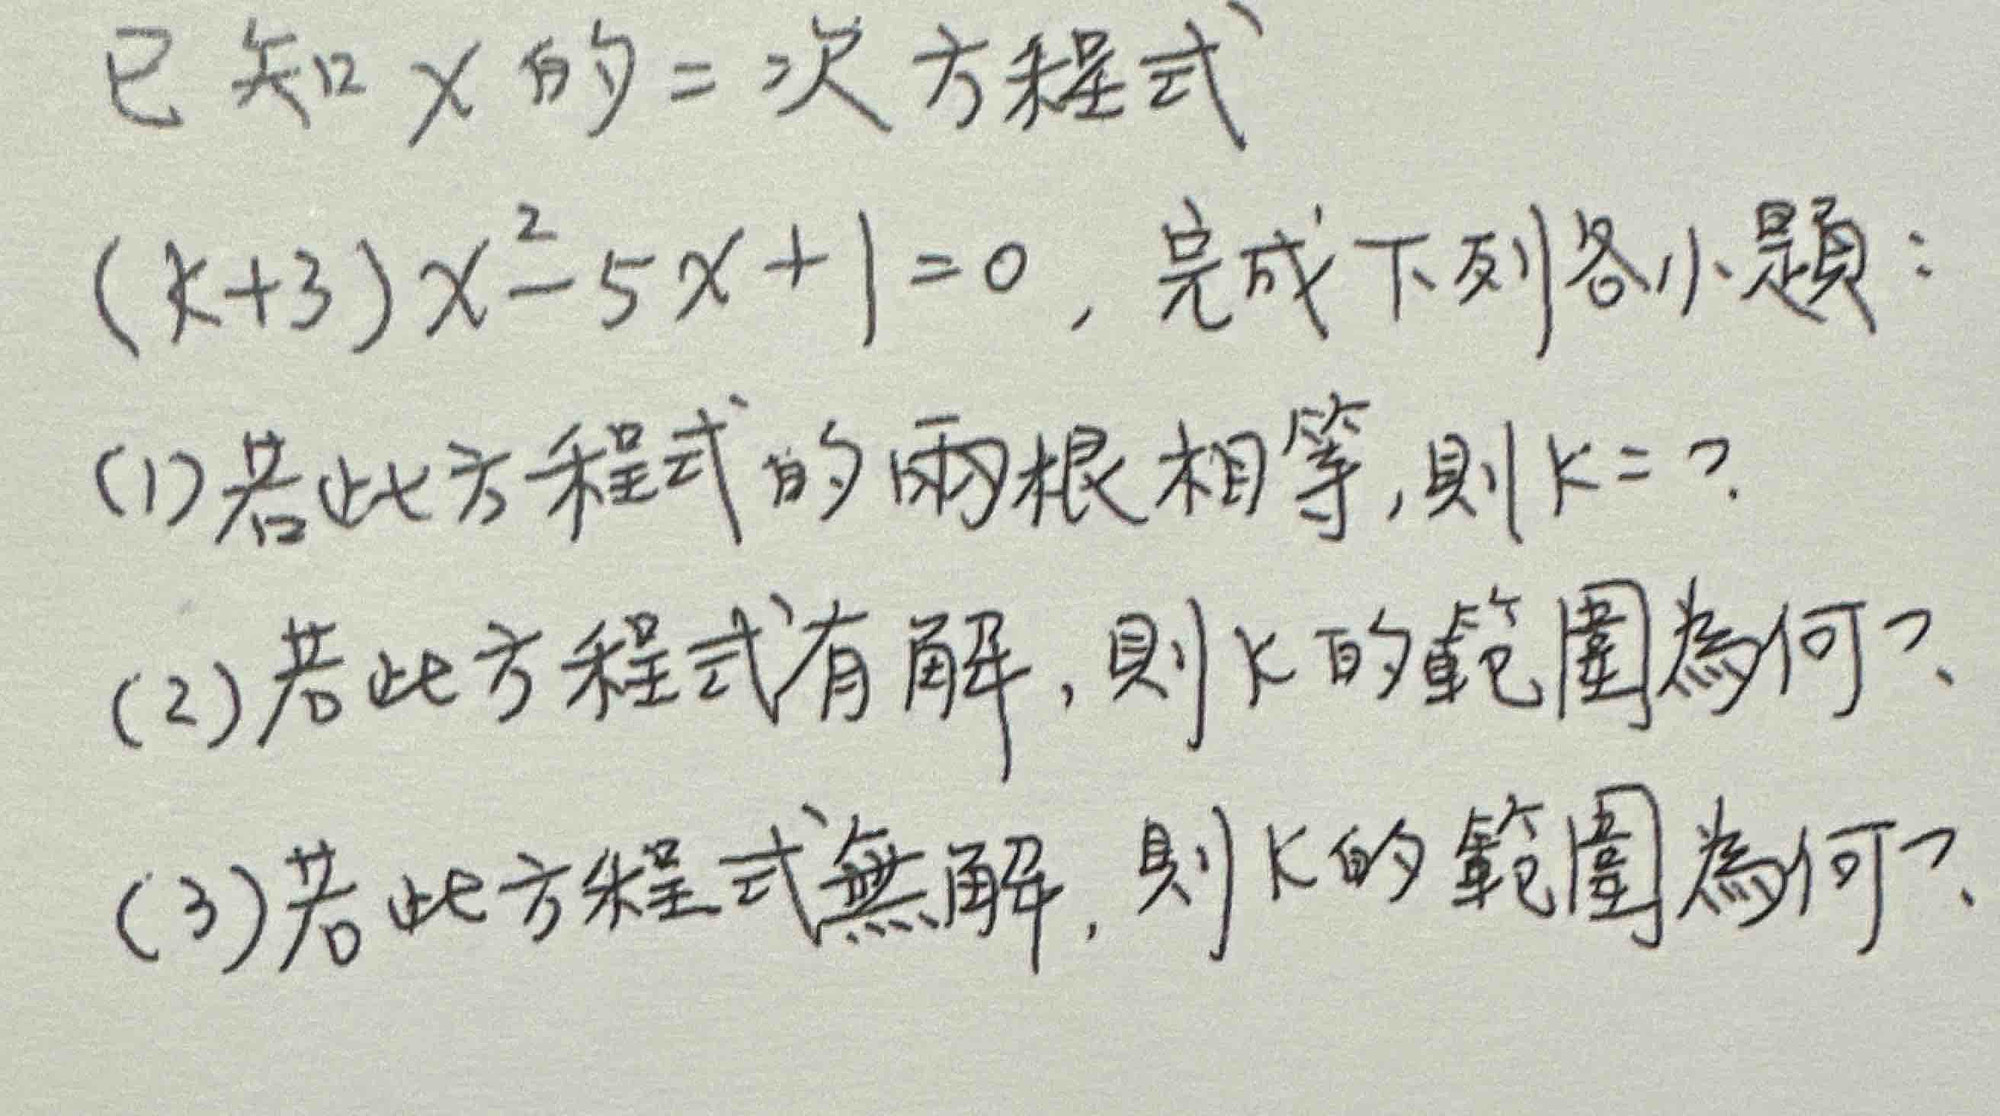 已知x的二次方程式
(k+3)x²-5x+1=0，完成下列各小題：
(1)若此方程式的兩根相等,則k=?
(2)若此方程式有解,則k的範圍為何?
(3)若此方程式無解,則k的範圍為何?